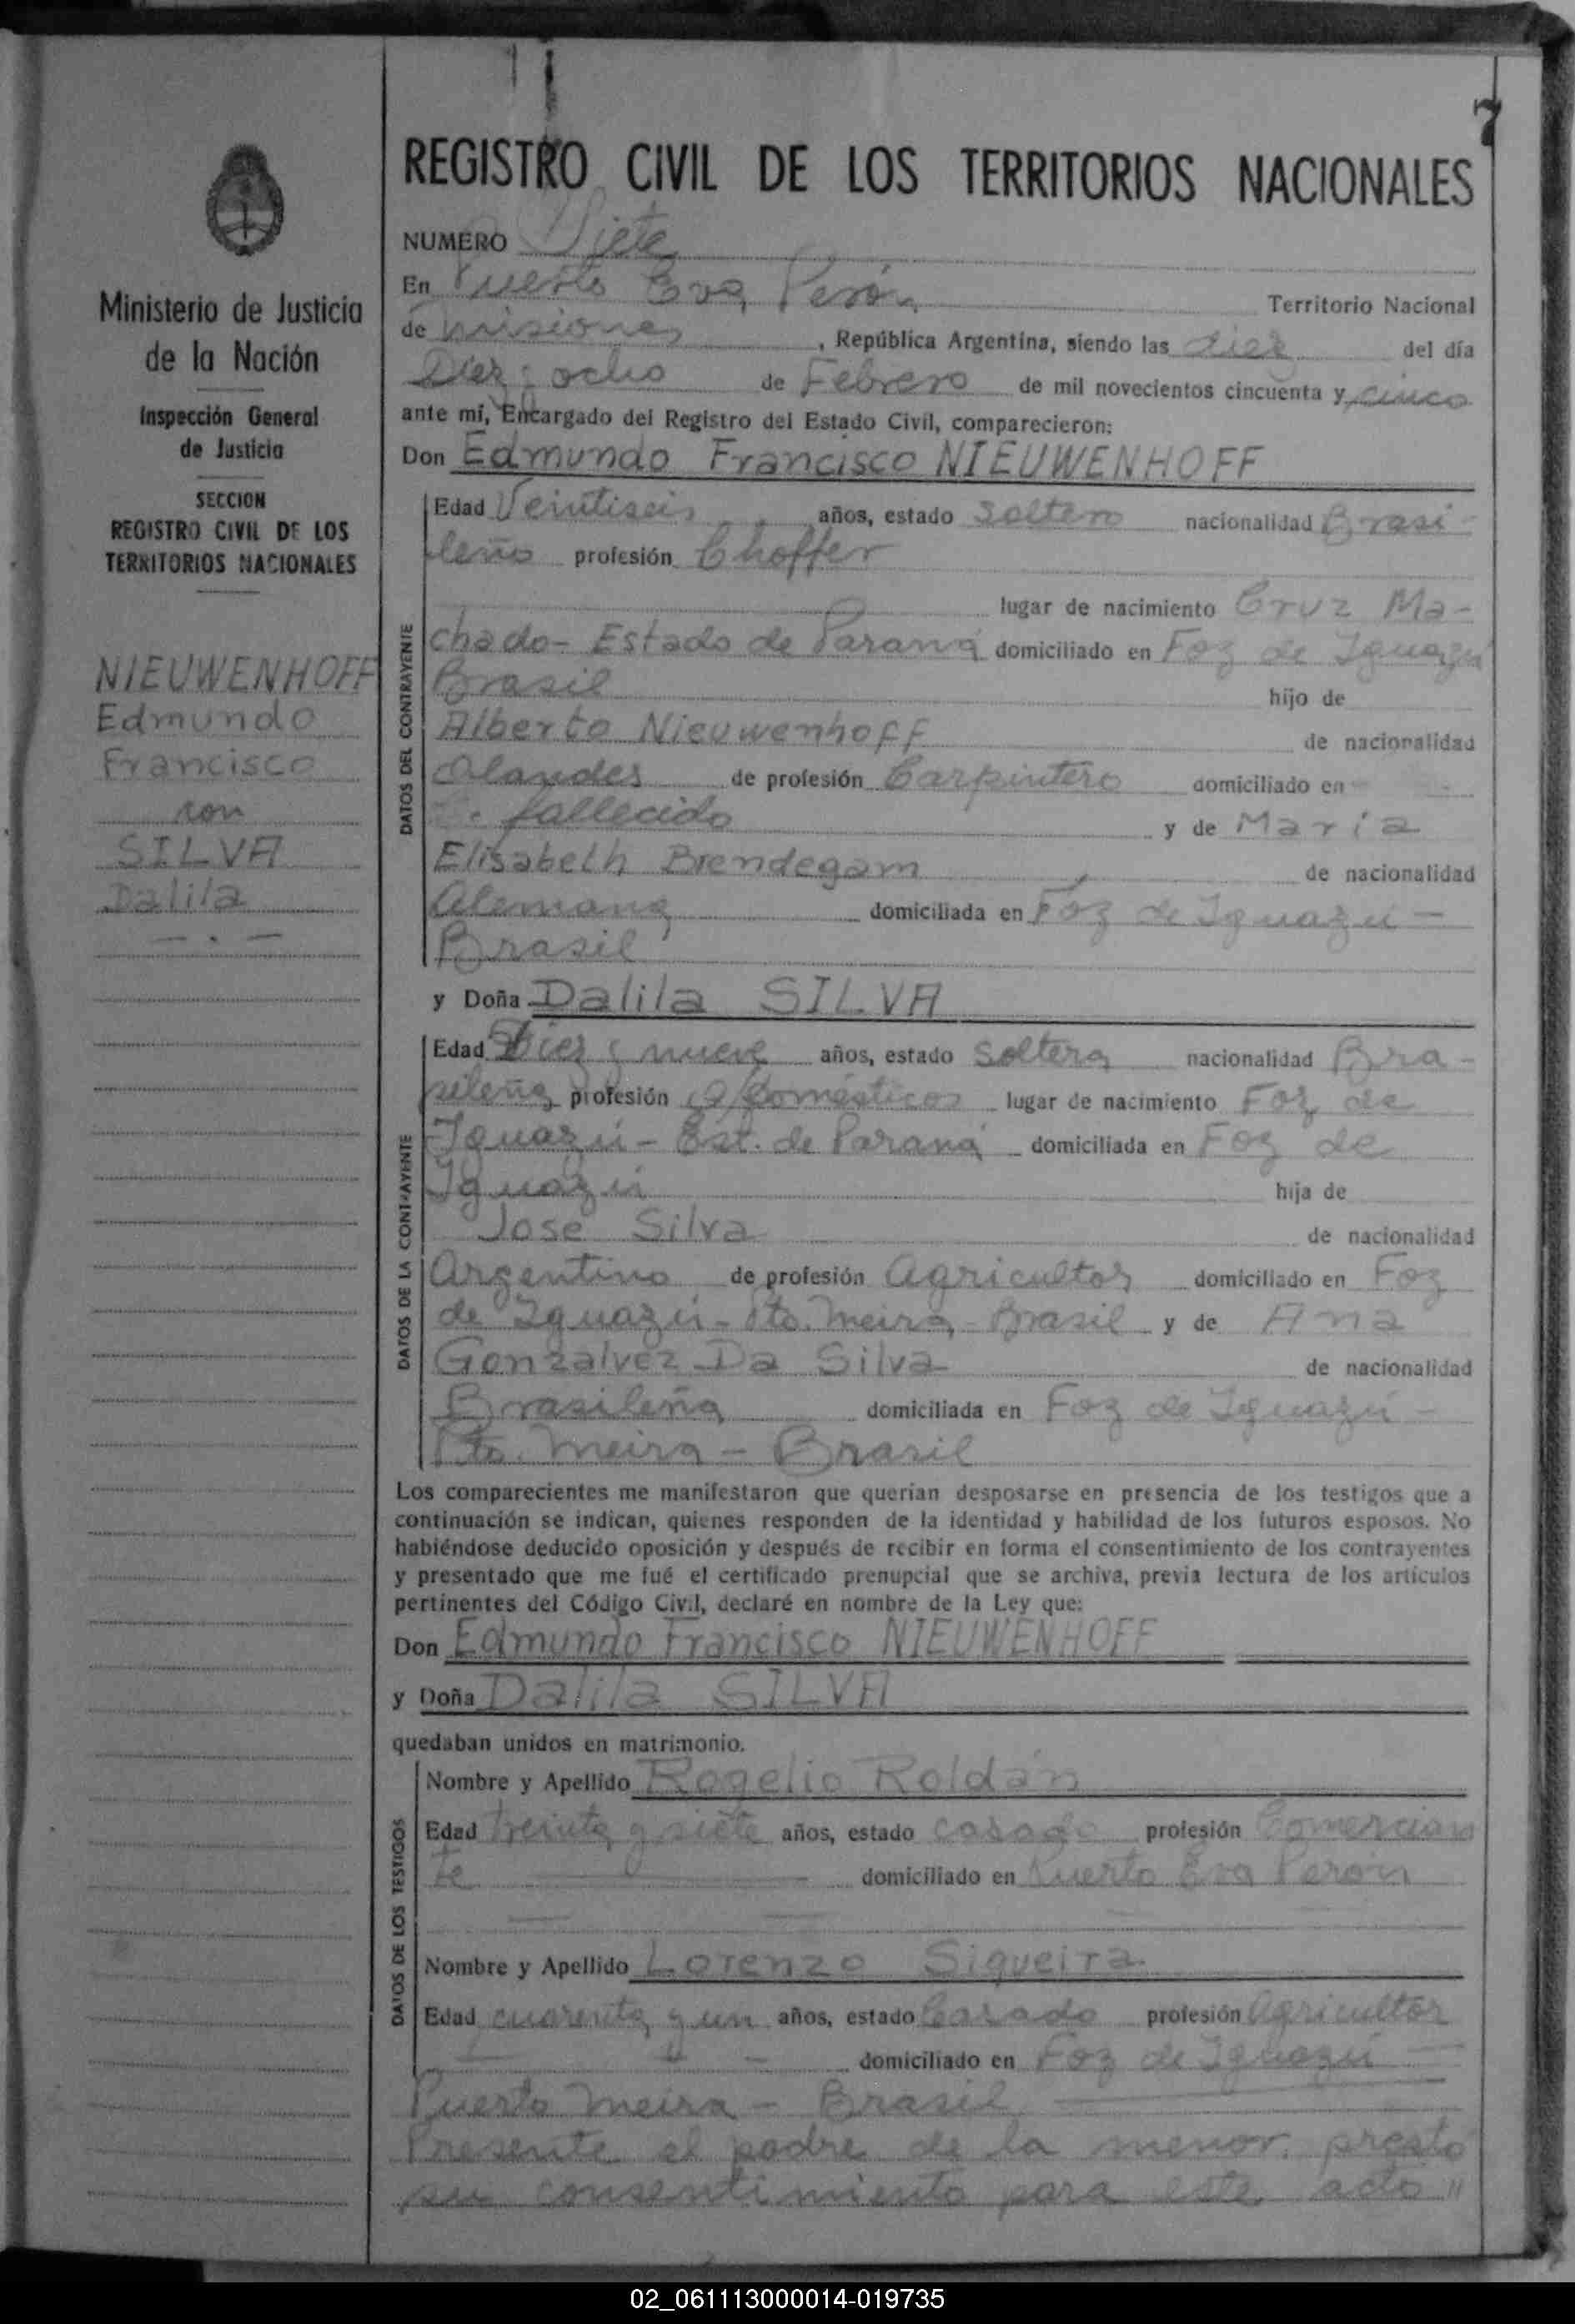 7
REGISTRO CIVIL DE LOS TERRITORIOS NACIONALES
Ministerio de Justicia
de la Nación
Inspección General
de Justicia
SECCION
REGISTRO CIVIL DE LOS
TERRITORIOS NACIONALES
NIEUWENHOFF
Edmundo
Francisco
con
SILVA
Dalila
NUMERO Siete
En Puerto Eva Perón Territorio Nacional
de Misiones, República Argentina, siendo las diez del día
Diez y ocho de Febrero de mil novecientos cincuenta y cinco
ante mí, Encargado del Registro del Estado Civil, comparecieron:
Don Edmundo Francisco NIEUWENHOFF
DATOS DEL CONTRAYENTE
Edad Veintiseis años, estado soltero nacionalidad Brasi-
leño profesión Choffer
lugar de nacimiento Cruz Ma-
chado- Estado de Paraná domiciliado en Foz de Iguazú
Brasil hijo de
Alberto Nieuwenhoff de nacionalidad
olandes de profesión Carpintero domiciliado en
fallecido y de María
Elisabeth Brendegam de nacionalidad
alemana domiciliada en Foz de Iguazú -
Brasil
y Doña Dalila SILVA
DATOS DE LA CONTRAYENTE
Edad Diez y nueve años, estado soltera nacionalidad Bra-
sileña profesión q/domésticos lugar de nacimiento Foz de
Iguazú - Est. de Paraná domiciliada en Foz de
Iguazú hija de
José Silva de nacionalidad
Argentino de profesión Agricultor domiciliado en Foz
de Iguazú - Pto. Meira - Brasil y de Ana
Gonzalvez Da Silva de nacionalidad
Brasileña domiciliada en Foz de Iguazú -
Pto. Meira - Brasil
Los comparecientes me manifestaron que querían desposarse en presencia de los testigos que a
continuación se indican, quienes responden de la identidad y habilidad de los futuros esposos. No
habiéndose deducido oposición y después de recibir en forma el consentimiento de los contrayentes
y presentado que me fué el certificado prenupcial que se archiva, previa lectura de los artículos
pertinentes del Código Civil, declaré en nombre de la Ley que:
Don Edmundo Francisco NIEUWENHOFF
y Doña Dalila SILVA
quedaban unidos en matrimonio.
DATOS DE LOS TESTIGOS
Nombre y Apellido Rogelio Roldán
Edad treinta y siete años, estado casado profesión Comercian
te domiciliado en Puerto Eva Perón
Nombre y Apellido Lorenzo Siqueira
Edad cuarenta y un años, estado Casado profesión Agricultor
domiciliado en Foz de Iguazú -
Puerto Meira - Brasil
Presente el padre de la menor, prestó
su consentimiento para este acto "
02_061113000014-019735